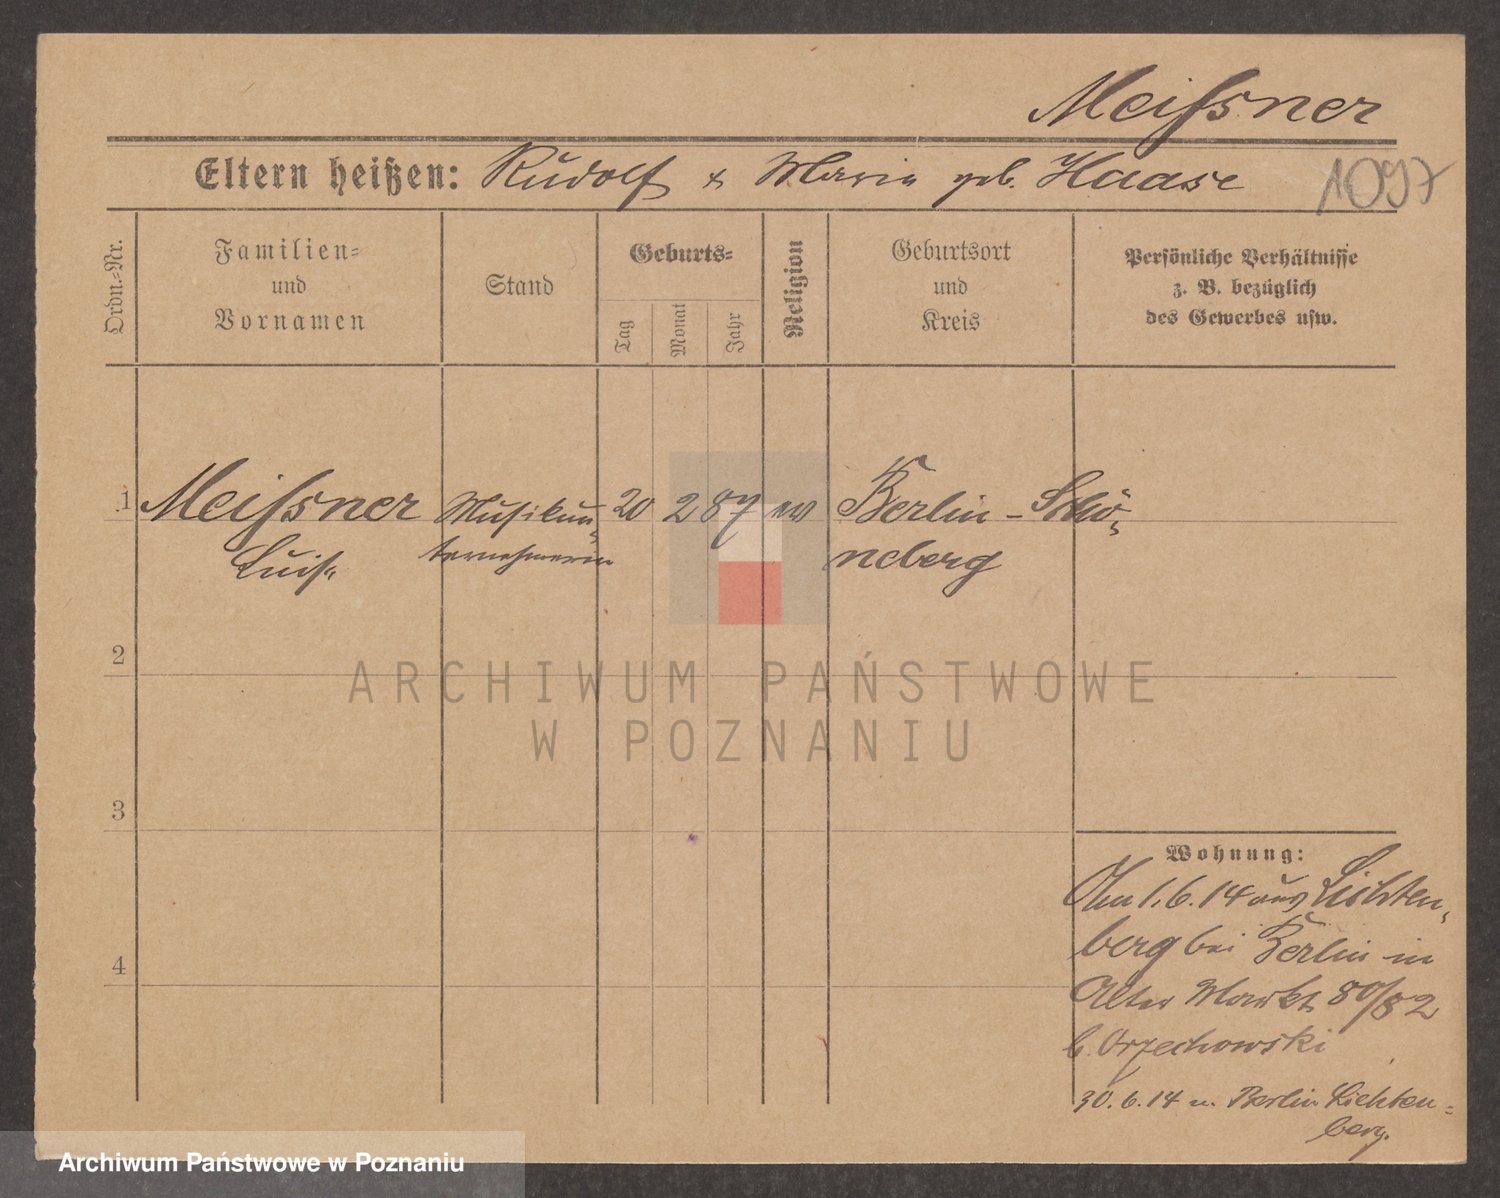 Meissner
Eltern heißen: Rudolf & Marie geb. Haase
1097
Ordn.-Nr.
Familien-
und
Vornamen
Stand
Geburts-
Tag
Monat
Jahr
Religion
Geburtsort
und
Kreis
Persönliche Verhältnisse
z. B. bezüglich
des Gewerbes usw.
1 Meissner Musikun- 20 2 87 ev Berlin - Schö-
Luise ternehmerin neberg
2
ARCHIWUM PAŃSTWOWE
W POZNANIU
3
Wohnung:
Am 1.6.14 aus Lichten-
berg bei Berlin in
4
Alter Markt 80/82
b. Orzechowski
30.6.14 n. Berlin Lichten-
berg.
Archiwum Państwowe w Poznaniu